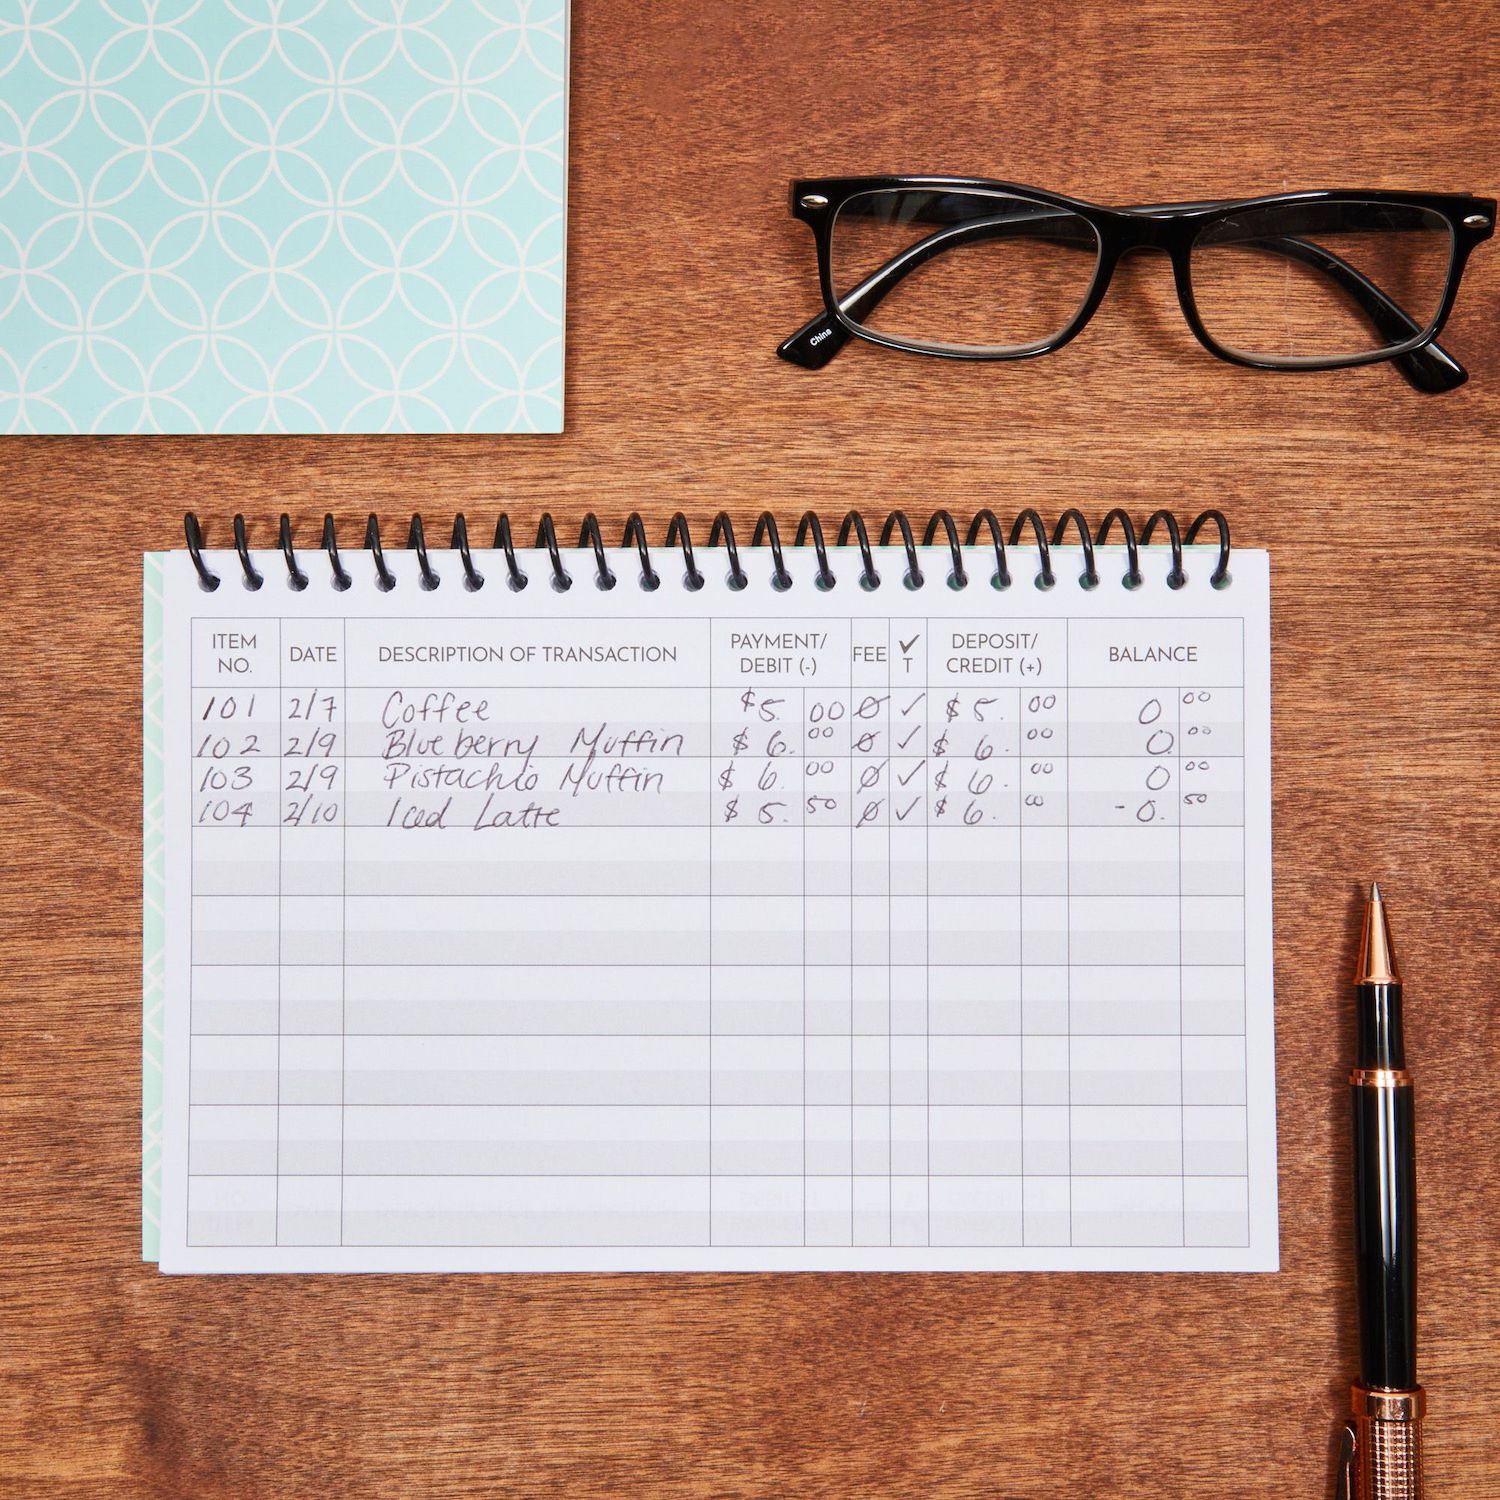 China
ITEM NO. DATE DESCRIPTION OF TRANSACTION PAYMENT/ DEBIT (-) FEE ✓ T DEPOSIT/ CREDIT (+) BALANCE
101 2/7 Coffee $5. 00 Ø ✓ $5. 00 0 00
102 2/9 Blueberry Muffin $6. 00 Ø ✓ $6. 00 0. 00
103 2/9 Pistachio Muffin $6. 00 Ø ✓ $6. 00 0 00
104 2/10 Iced Latte $5. 50 Ø ✓ $6. 00 -0. 50